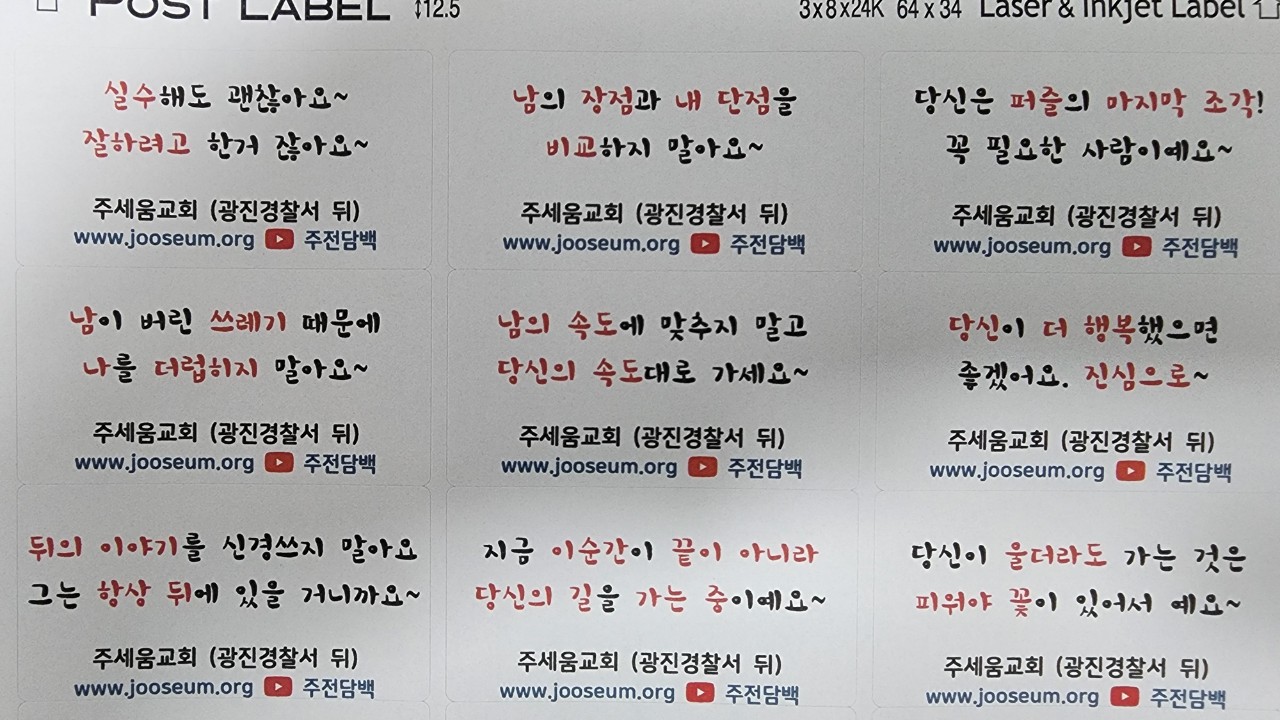 POST LABEL ↕12.5 3x8x24K 64 x 34 Laser & Inkjet Label
실수해도 괜찮아요~
잘하려고 한거 잖아요~
주세움교회 (광진경찰서 뒤)
www.jooseum.org 주전담백
남의 장점과 내 단점을
비교하지 말아요~
주세움교회 (광진경찰서 뒤)
www.jooseum.org 주전담백
당신은 퍼즐의 마지막 조각!
꼭 필요한 사람이예요~
주세움교회 (광진경찰서 뒤)
www.jooseum.org 주전담백
남이 버린 쓰레기 때문에
나를 더럽히지 말아요~
주세움교회 (광진경찰서 뒤)
www.jooseum.org 주전담백
남의 속도에 맞추지 말고
당신의 속도대로 가세요~
주세움교회 (광진경찰서 뒤)
www.jooseum.org 주전담백
당신이 더 행복했으면
좋겠어요. 진심으로~
주세움교회 (광진경찰서 뒤)
www.jooseum.org 주전담백
뒤의 이야기를 신경쓰지 말아요
그는 항상 뒤에 있을 거니까요~
주세움교회 (광진경찰서 뒤)
www.jooseum.org 주전담백
지금 이순간이 끝이 아니라
당신의 길을 가는 중이예요~
주세움교회 (광진경찰서 뒤)
www.jooseum.org 주전담백
당신이 울더라도 가는 것은
피워야 꽃이 있어서 예요~
주세움교회 (광진경찰서 뒤)
www.jooseum.org 주전담백